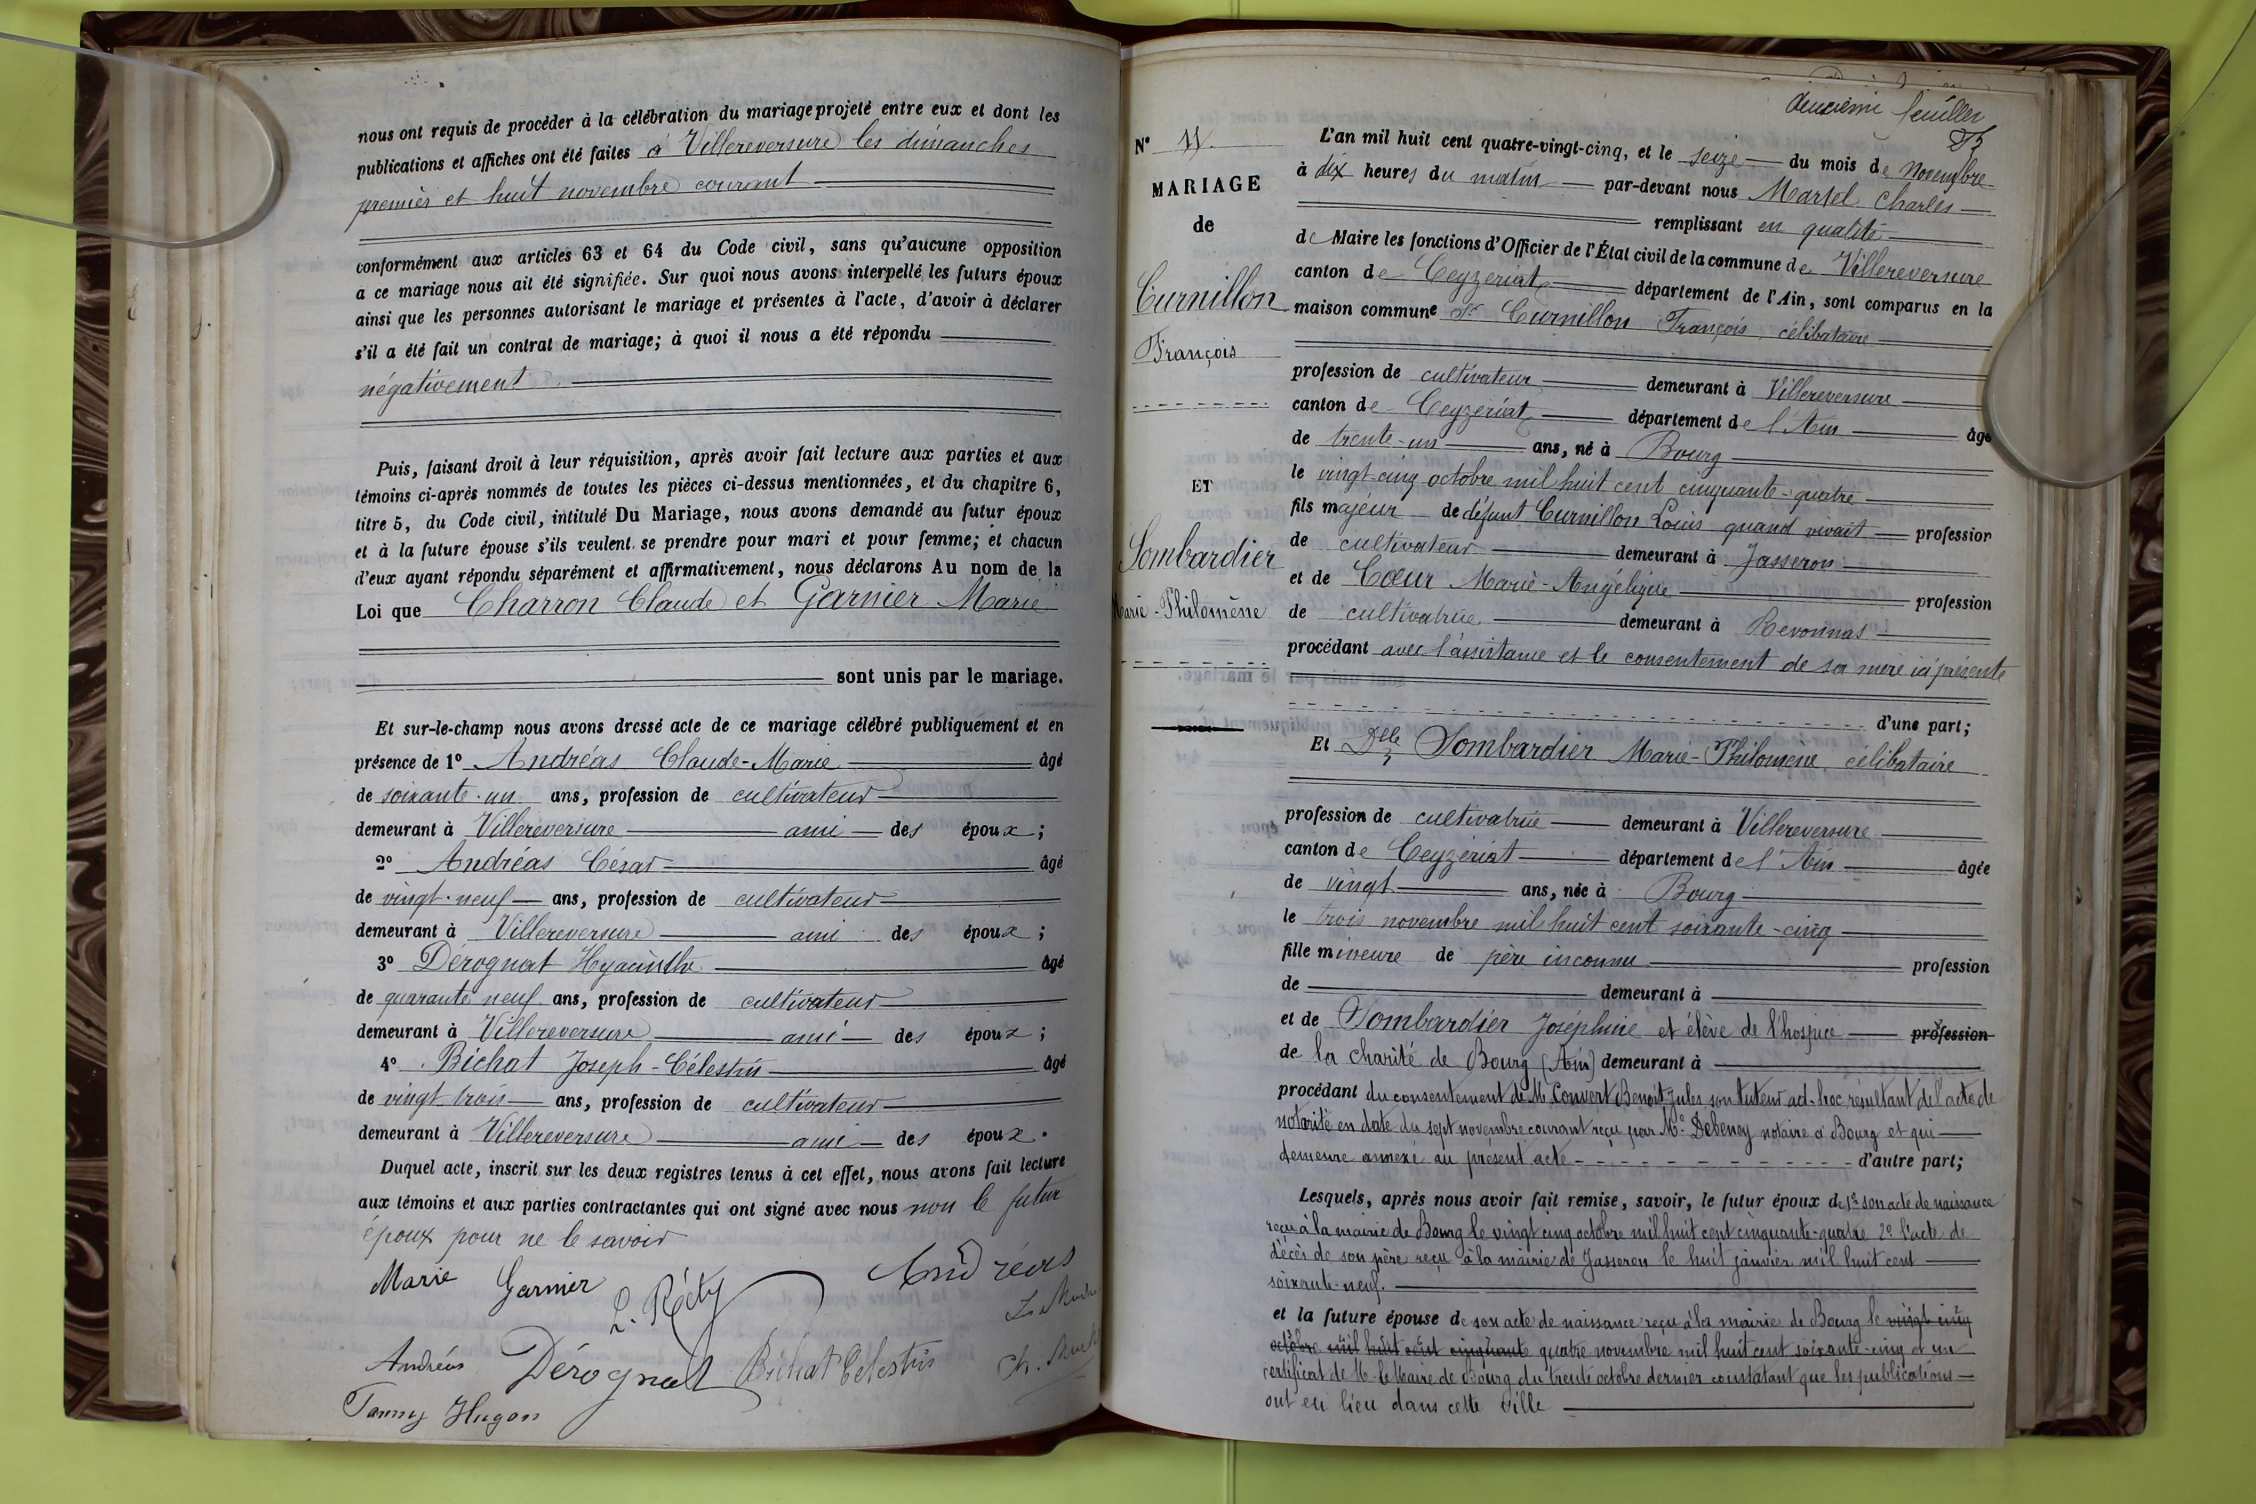 nous ont requis de procéder à la célébration du mariage projeté entre eux et dont les
publications et affiches ont été faites à Villereversure les dimanches
premier et huit novembre courant
conformément aux articles 63 et 64 du Code civil, sans qu'aucune opposition
a ce mariage nous ait été signifiée. Sur quoi nous avons interpellé les futurs époux
ainsi que les personnes autorisant le mariage et présentes à l'acte, d'avoir à déclarer
s'il a été fait un contrat de mariage; à quoi il nous a été répondu
négativement
Puis, faisant droit à leur réquisition, après avoir fait lecture aux parties et aux
témoins ci-après nommés de toutes les pièces ci-dessus mentionnées, et du chapitre 6,
titre 5, du Code civil, intitulé Du Mariage, nous avons demandé au futur époux
et à la future épouse s'ils veulent se prendre pour mari et pour femme; et chacun
d'eux ayant répondu séparément et affirmativement, nous déclarons Au nom de la
Loi que Charron Claude et Garnier Marie
sont unis par le mariage.
Et sur-le-champ nous avons dressé acte de ce mariage célébré publiquement et en
présence de 1° Andréas Claude-Marie âgé
de soixante-un ans, profession de cultivateur
demeurant à Villereversure ami des époux ;
2° Andréas César âgé
de vingt-neuf ans, profession de cultivateur
demeurant à Villereversure ami des époux ;
3° Dérognat Hyacinthe âgé
de quarante neuf ans, profession de cultivateur
demeurant à Villereversure ami des époux ;
4° Bichat Joseph-Célestin âgé
de vingt trois ans, profession de cultivateur
demeurant à Villereversure ami des époux.
Duquel acte, inscrit sur les deux registres tenus à cet effet, nous avons fait lecture
aux témoins et aux parties contractantes qui ont signé avec nous non le futur
époux pour ne le savoir
Marie Garnier L. Réty Andréas
Andréas Dérognat Bichat Célestin Ch.
Fanny Hugon
deuxième feuillet
N° 11.
MARIAGE
de
Curnillon
François
ET
Lombardier
Marie-Philomène
L'an mil huit cent quatre-vingt-cinq, et le seize du mois de Novembre
à dix heures du matin par-devant nous Martel Charles
remplissant en qualité
de Maire les fonctions d'Officier de l'État civil de la commune de Villereversure
canton de Ceyzériat département de l'Ain, sont comparus en la
maison commune Sr Curnillon François, célibataire
profession de cultivateur demeurant à Villereversure
canton de Ceyzériat département de l'Ain âgé
de trente-un ans, né à Bourg
le vingt-cinq octobre mil huit cent cinquante-quatre
fils majeur de défunt Curnillon Louis quand vivait profession
de cultivateur demeurant à Jasseron
et de Cœur Marie-Angélique profession
de cultivatrice demeurant à Revonnas
procédant avec l'assistance et le consentement de sa mère ici présente
d'une part;
Et Dlle Lombardier Marie-Philomène, célibataire
profession de cultivatrice demeurant à Villereversure
canton de Ceyzériat département de l'Ain âgée
de vingt ans, née à Bourg
le trois novembre mil huit cent soixante-cinq
fille mineure de père inconnu profession
de demeurant à
et de Lombardier Joséphine et élève de l'hospice profession
de la charité de Bourg (Ain) demeurant à
procédant du consentement de M. Convert Benoit Jules son tuteur ad-hoc résultant de l'acte de
notorité en date du sept novembre courant reçu par Me Debeney notaire à Bourg et qui
demeure annexé au présent acte d'autre part;
Lesquels, après nous avoir fait remise, savoir, le futur époux de 1° son acte de naissance
reçu à la mairie de Bourg le vingt cinq octobre mil huit cent cinquante-quatre 2° l'acte de
décès de son père reçu à la mairie de Jasseron le huit janvier mil huit cent
soixante-neuf.
et la future épouse de son acte de naissance reçu à la mairie de Bourg le vingt cinq
octobre mil huit cent cinquante quatre novembre mil huit cent soixante-cinq et un
certificat de M. le Maire de Bourg du trente octobre dernier constatant que les publications
ont eu lieu dans cette ville